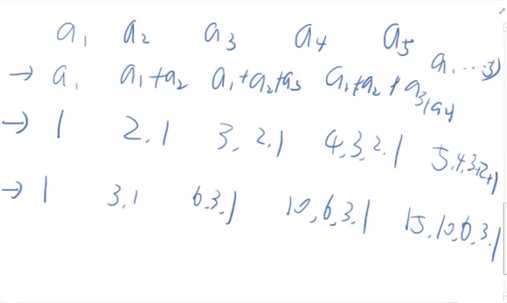 a₁ a₂ a₃ a₄ a₅
→ a₁ a₁+a₂ a₁+a₂+a₃ a₁+a₂+a₃+a₄ a₁...5
→ 1 2.1 3, 2.1 4,3,2.1 5.4,3+2+1
→ 1 3,1 6.3.1 10,6,3.1 15.10,6,3.1